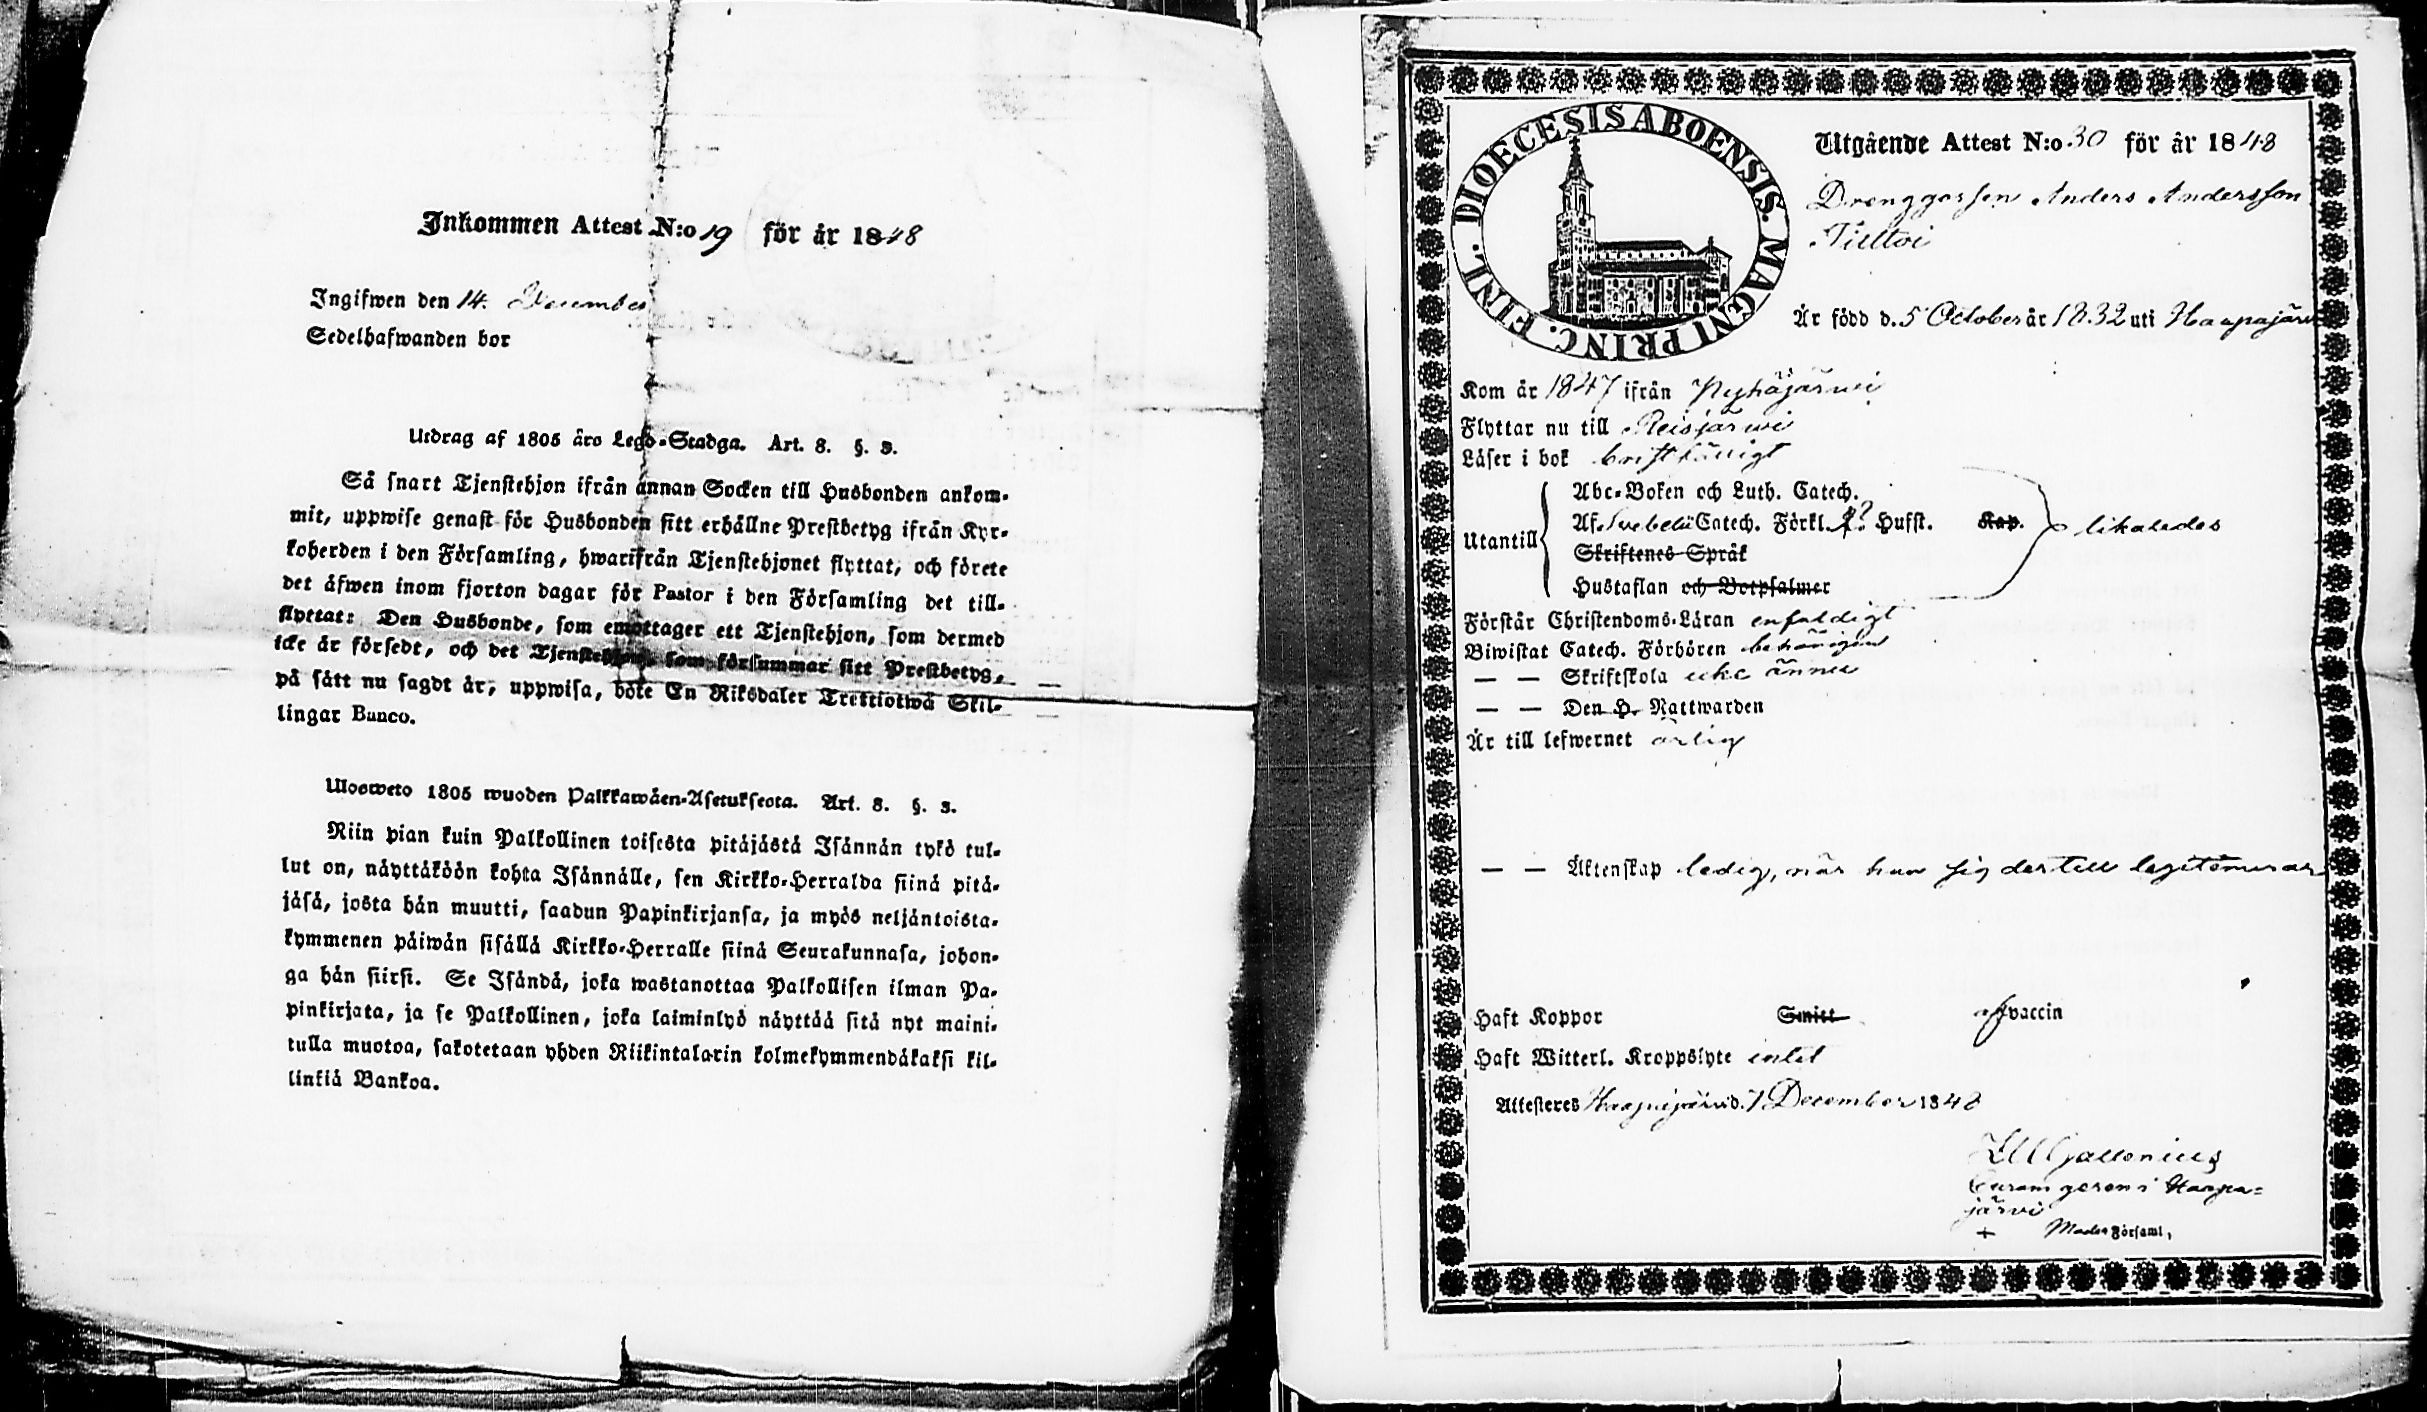 Inkommen Attest N:o 19 för år 1848
Ingifwen den 14. December
Sedelhafwanden bor
Utdrag af 1805 års Lego-Stadga. Art. 8. §. 3.
Så snart Tjenstehjon ifrån annan Socken till Husbonden ankom-
mit, uppwise genast för Husbonden sitt erhållne Prestbetyg ifrån Kyr-
koherden i den Församling, hwarifrån Tjenstehjonet flyttat, och förete
det äfwen inom fjorton dagar för Pastor i den Församling det till-
flyttat: Den Husbonde, som emottager ett Tjenstehjon, som dermed
icke är försedt, och det Tjenstehjon, som försummar sitt Prestbetyg,
på sätt nu sagdt är, uppwisa, böte En Riksdaler Trettiotwå Skil-
lingar Banco.
Ulosweto 1805 wuoden Palkkawäen-Asetuksesta. Art. 8. §. 3.
Niin pian kuin Palkollinen toisesta pitäjästä Isännän tykö tul-
lut on, näyttäköön kohta Isännälle, sen Kirkko-Herralda siinä pitä-
jäsä, josta hän muutti, saadun Papinkirjansa, ja myös neljäntoista-
kymmenen päiwän sisällä Kirkko-Herralle siinä Seurakunnasa, johon-
ga hän siirsi. Se Isändä, joka wastanottaa Palkollisen ilman Pa-
pinkirjata, ja se Palkollinen, joka laiminlyö näyttää sitä nyt maini-
tulla muotoa, sakotetaan yhden Riikintalarin kolmekymmendäkaksi kil-
linkiä Bankoa.
DIOECESIS ABOENSIS. MAGNI PRINC. FINL.
Utgående Attest N:o 30 för år 1848
Drenggossen Anders Andersson
Är född d. 5 October år 1832 uti Haapajärvi
Kom år 1847 ifrån Pyhäjärvi
Flyttar nu till Reisjärvi
Läser i bok bristfälligt
Utantill
Abc-Boken och Luth. Catech.
Af Svebelii Catech. Förkl. Hufst. Kap. likaledes
Skriftenes Språk
Hustaflan och Botpsalmer
Förstår Christendoms-Läran enfaldigt
Biwistat Catech. Förhören behörigen
— — Skriftskola icke ännu
— — Den H. Nattwarden
Är till lefwernet ärlig
— — Äktenskap ledig, när han sig dertill legitimerar
Haft Koppor Smitt af vaccin
Haft Witterl. Kroppslyte intet
Attesteres Haapajärvi d. 7 December 1848
Curam gerens i Haapa=
järvi
+ Moder Församl,